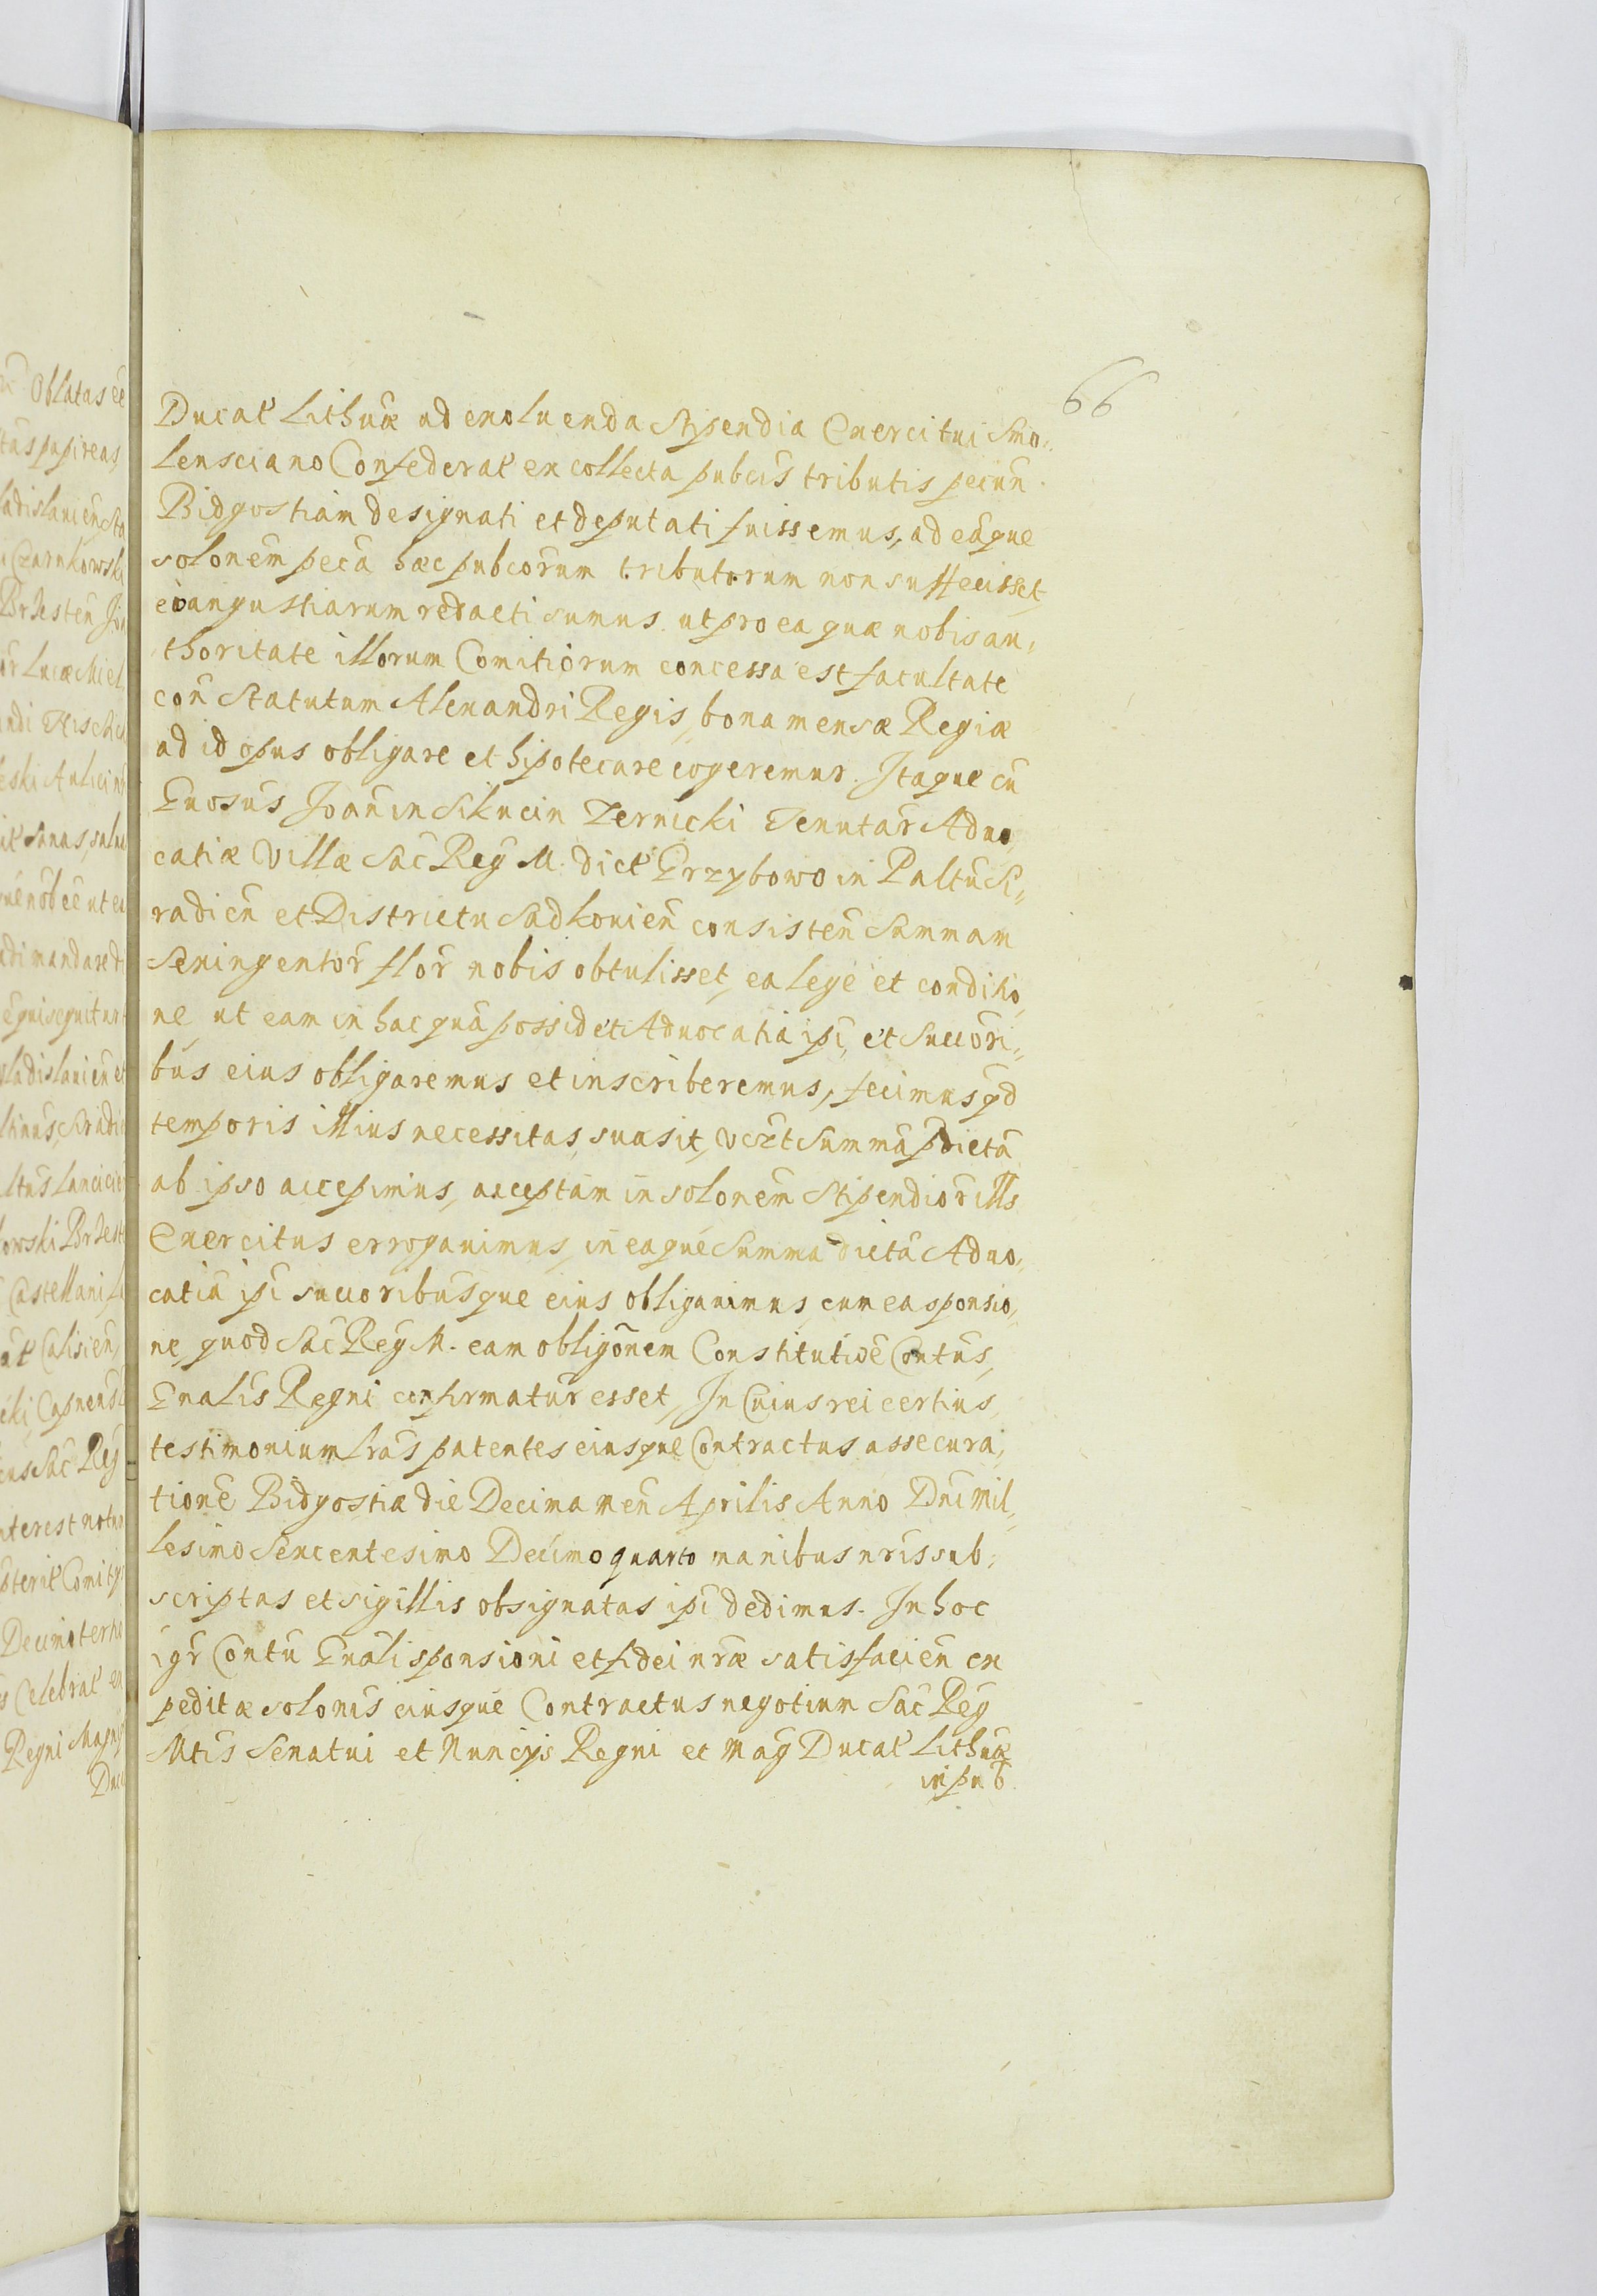 66
Ducat Lithuæ ad exoluenda Stipendia Exercitui Smo„
lensciano Confederat ex collecta pubcis tributis pecun
Bidgostiam designati et deputati fuissemus, ad eāque
solonem peca hæc pubcorum tributorum non suffecisset
eo angustiarum redacti sumus ut pro ea quæ nobis au„
thoritate illorum Comitiorum concessa est facultate
con Statutum Alexandri Regis, bona mensæ Regiæ
ad id opus obligare et hipotecare cogeremur. Itaque cū
Gnosus Joan in Sikucin Zernicki Tenutar Aduo
catiæ Villæ Sac Reg M. dict Grzybowo in Paltu Si„
radien et Districtu Sadkouien consisten Summam
Sexingentor flor nobis obtulisset, ea lege et conditio„
ne ut eam in hac quā possidet Aduocatia ipi, et Succori„
bus eius obligaremus et inscriberemus, fecimus qd
temporis illius necessitas, suasit, Summā pdictā
ab ipso accepimus, acceptam in solonem Stipendior ills
Exercitus erroganimus, in eaque Summa dictā Aduo„
catiā ipi succoribusque eius obligauimus, cum ea sponsio„
ne, quod Sac Reg M. eam obligonem Constitutioē Contus,
Gnalis Regni confirmatur esset, In Cuius rei certius,
testimonium lras patentes eiusque Contractus assecura„
tione Bidgostiæ die Decima men Aprilis Anno Dni Mil„
lesimo Sexcentesimo Decimo quarto manibus nris sub„
scriptas et sigillis obsignatas ipi dedimus. In hoc
igr Contu Gnali sponsioni et fidei nræ satisfacien ex
peditæ solonis eiusque Contractus negotium Sac Reg
Mtis Senatui et Nuncijs Regni et Mag Ducat Lithuæ
in pub